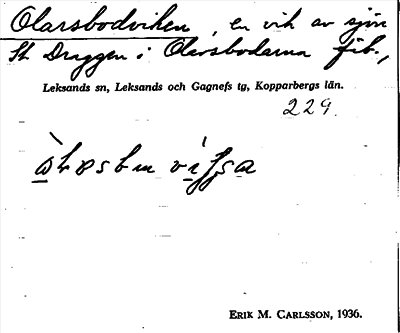 Olarsbodviken, en vik av sjön
St. Draggen i Olarsbodarna fäb.,
Leksands sn, Leksands och Gagnefs tg, Kopparbergs län.
229.
ERIK M. CARLSSON, 1936.